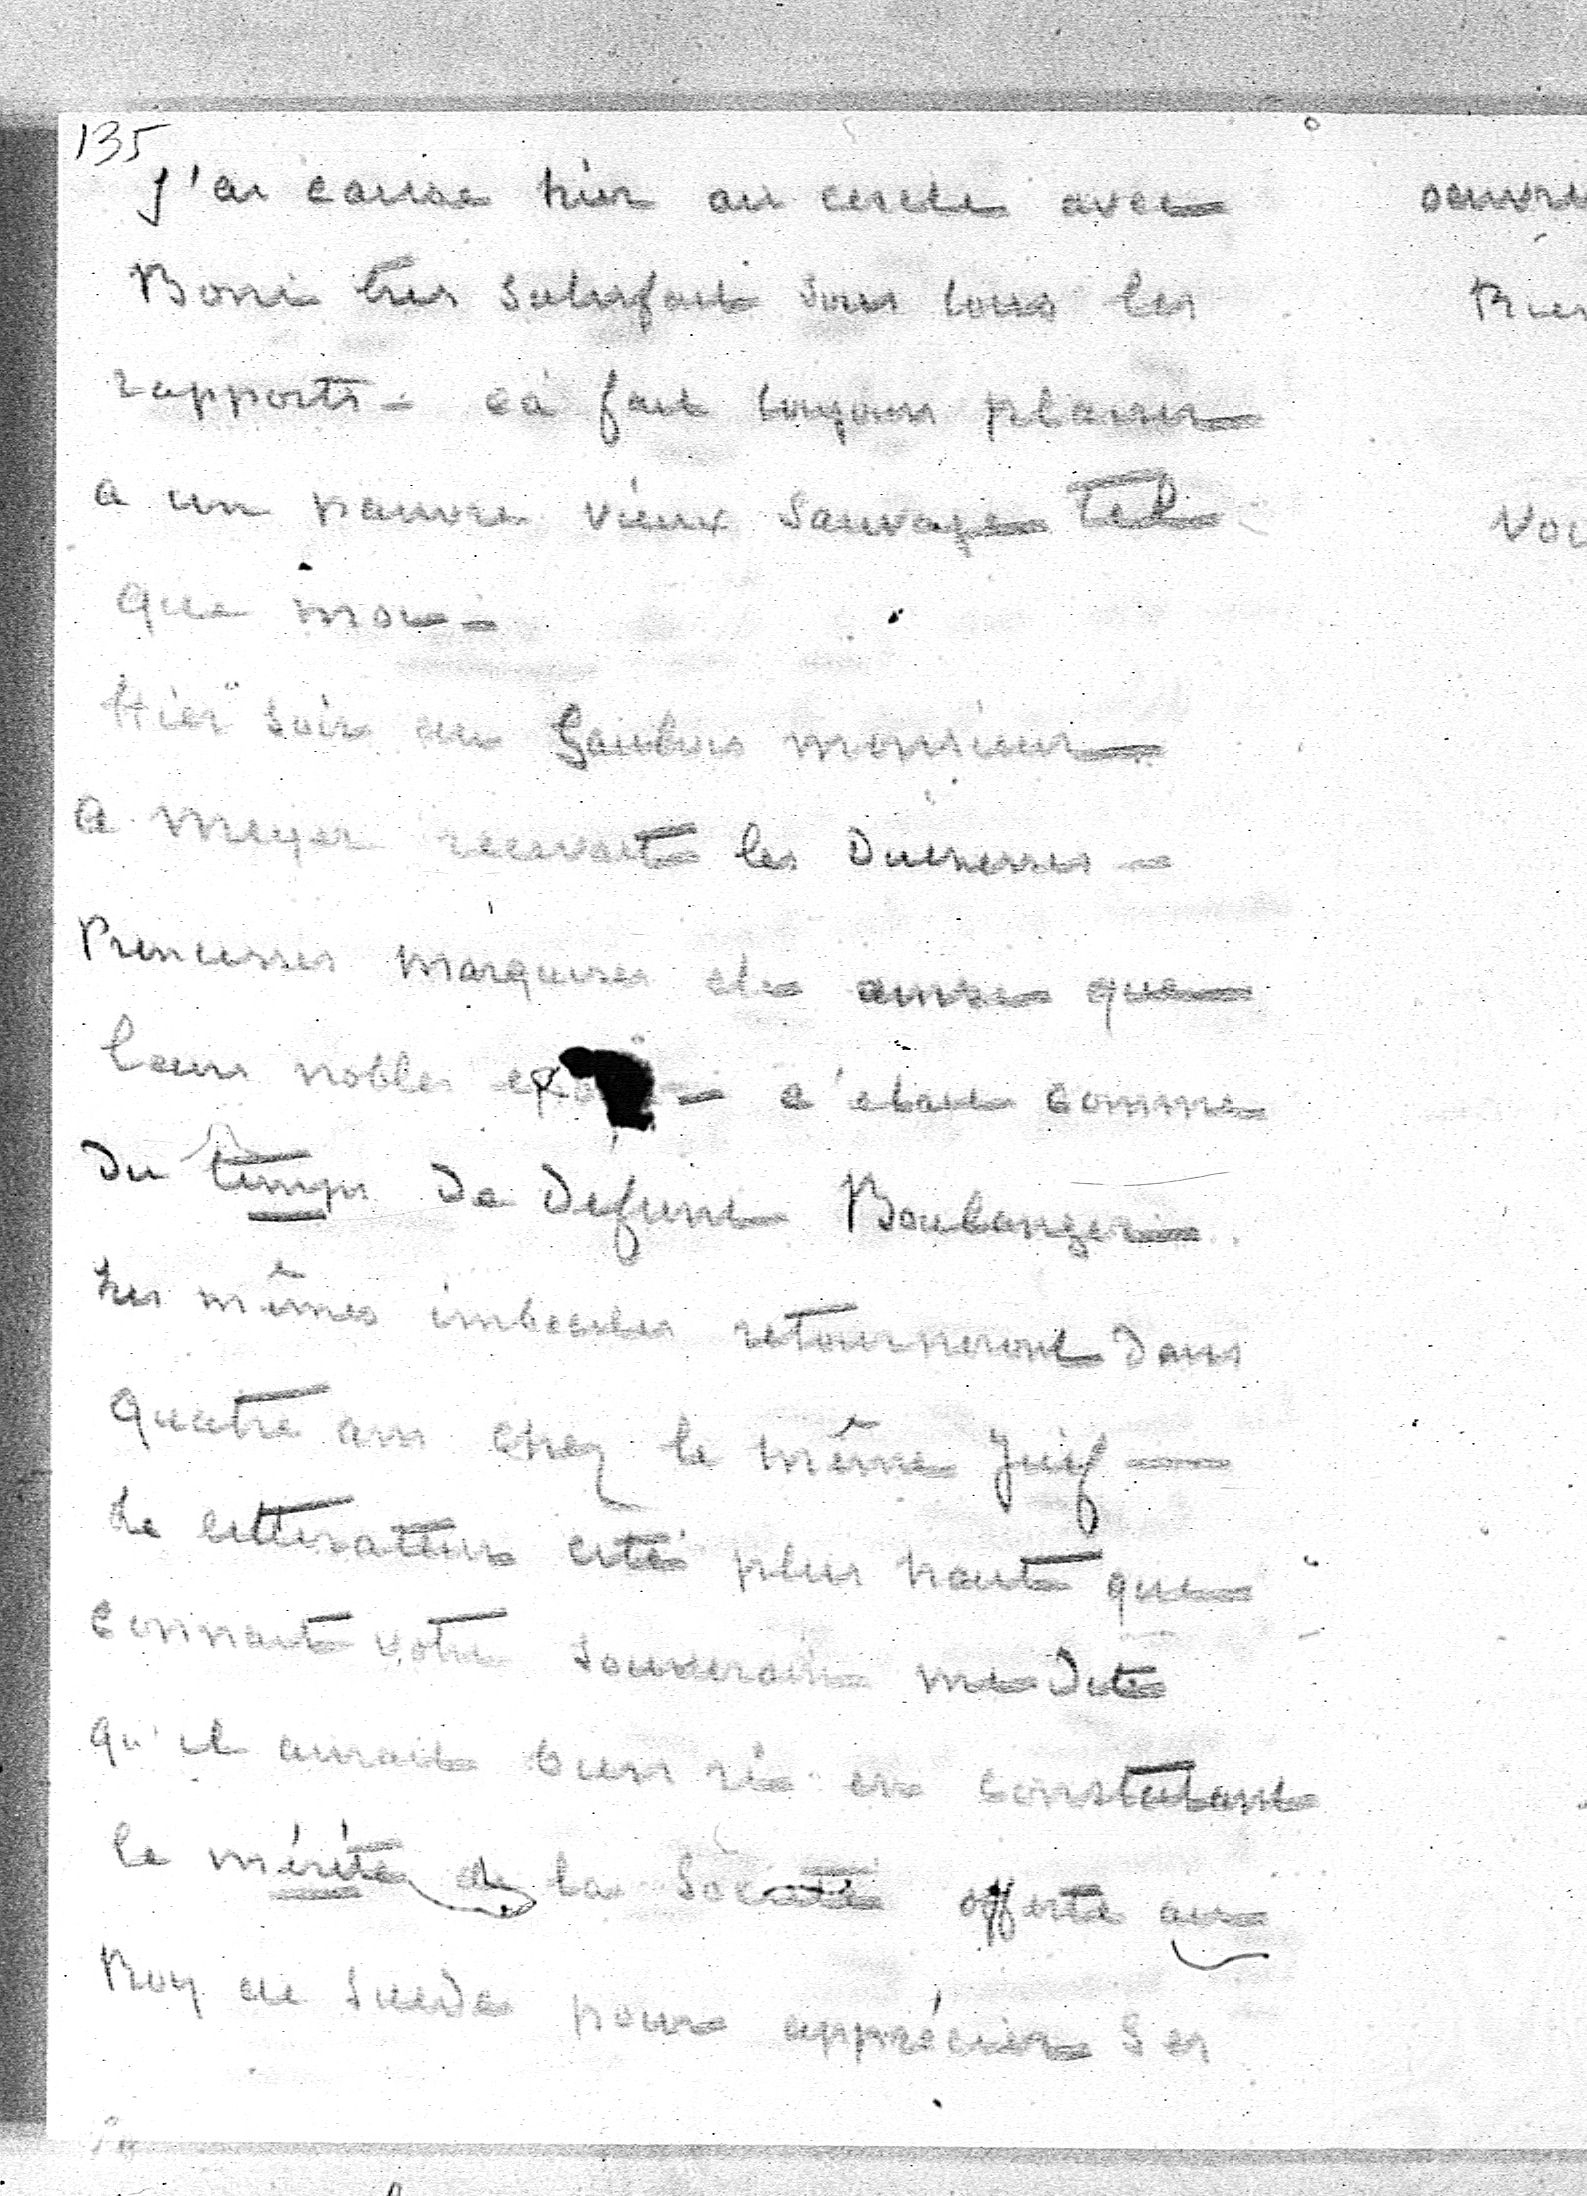 135
J'ai causé hier au cercle avec
Boni très satisfait sous tous les
rapports - ça fait toujours plaisir
a un pauvre vieux Sauvage tel
que moi -
Hier soir au Gaulois monsieur
A Meyer recevait les Duchesses -
Princesses marquises etc ainsi que
leurs nobles - c'etait comme
Du temps De Défunt Boulanger
Les mêmes imbeciles retourneront Dans
quatre ans chez le même Juif -
Le litterateur cité plus haut qui
connait votre Souverain me dit
qu'il aurait bien ri en constatant
le mérite de la Société offerte au
Roy de Suede pour apprécier Ses
oeuvre
Rien
Vou